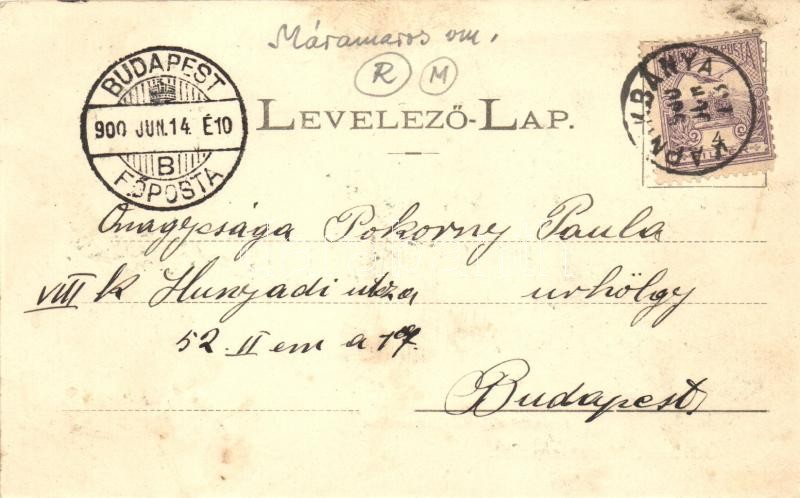 Máramaros vm.
R M
BUDAPEST
900 JUN. 14. É10
B
FŐPOSTA
LEVELEZŐ-LAP.
Onagysága Pokorny Paula
VIII k Hunyadi utza urhölgy
52 II em a 17.
Budapest